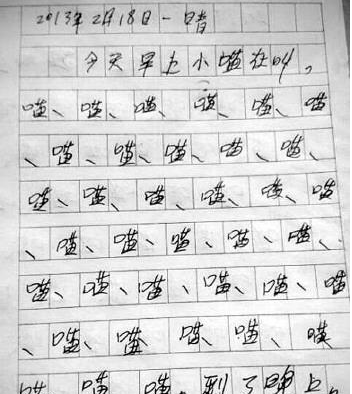 2013年2月18日一晴
今天早上小喵在叫。
喵、喵、喵、喵、喵、喵
、喵、喵、喵、喵、喵、
喵、喵、喵、喵、喵、喵
、喵、喵、喵、喵、喵、
喵、喵、喵、喵、喵、喵
、喵、喵、喵、喵、喵
喵、喵、喵、到了晚上。